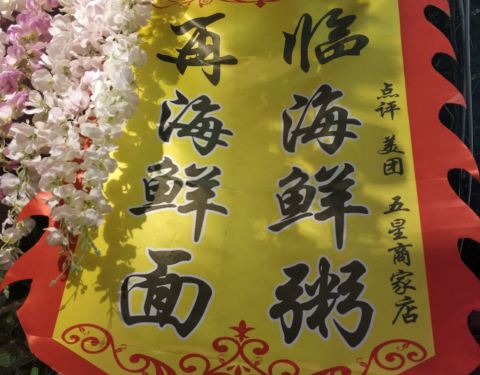 点评 美团 五星商家店
临海鲜粥
再海鲜面